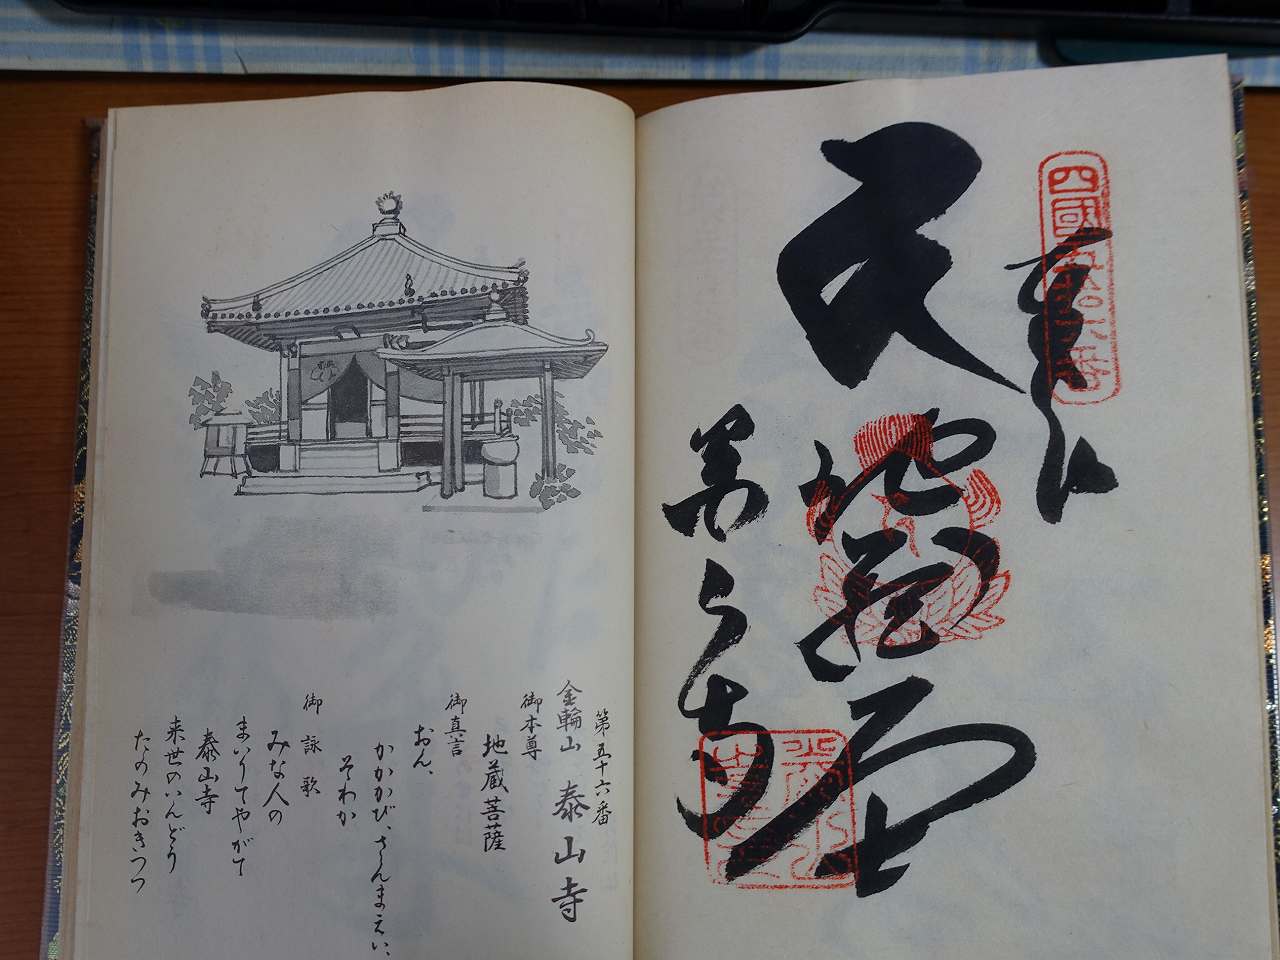 四國五拾六番
奉納
地蔵
泰山寺
第五十六番
金輪山 泰山寺
御本尊
地蔵菩薩
御真言
おん、
かかかび、さんまえい、
そわか
御詠歌
みな人の
まいりてやがて
泰山寺
来世のいんどう
たのみおきつつ